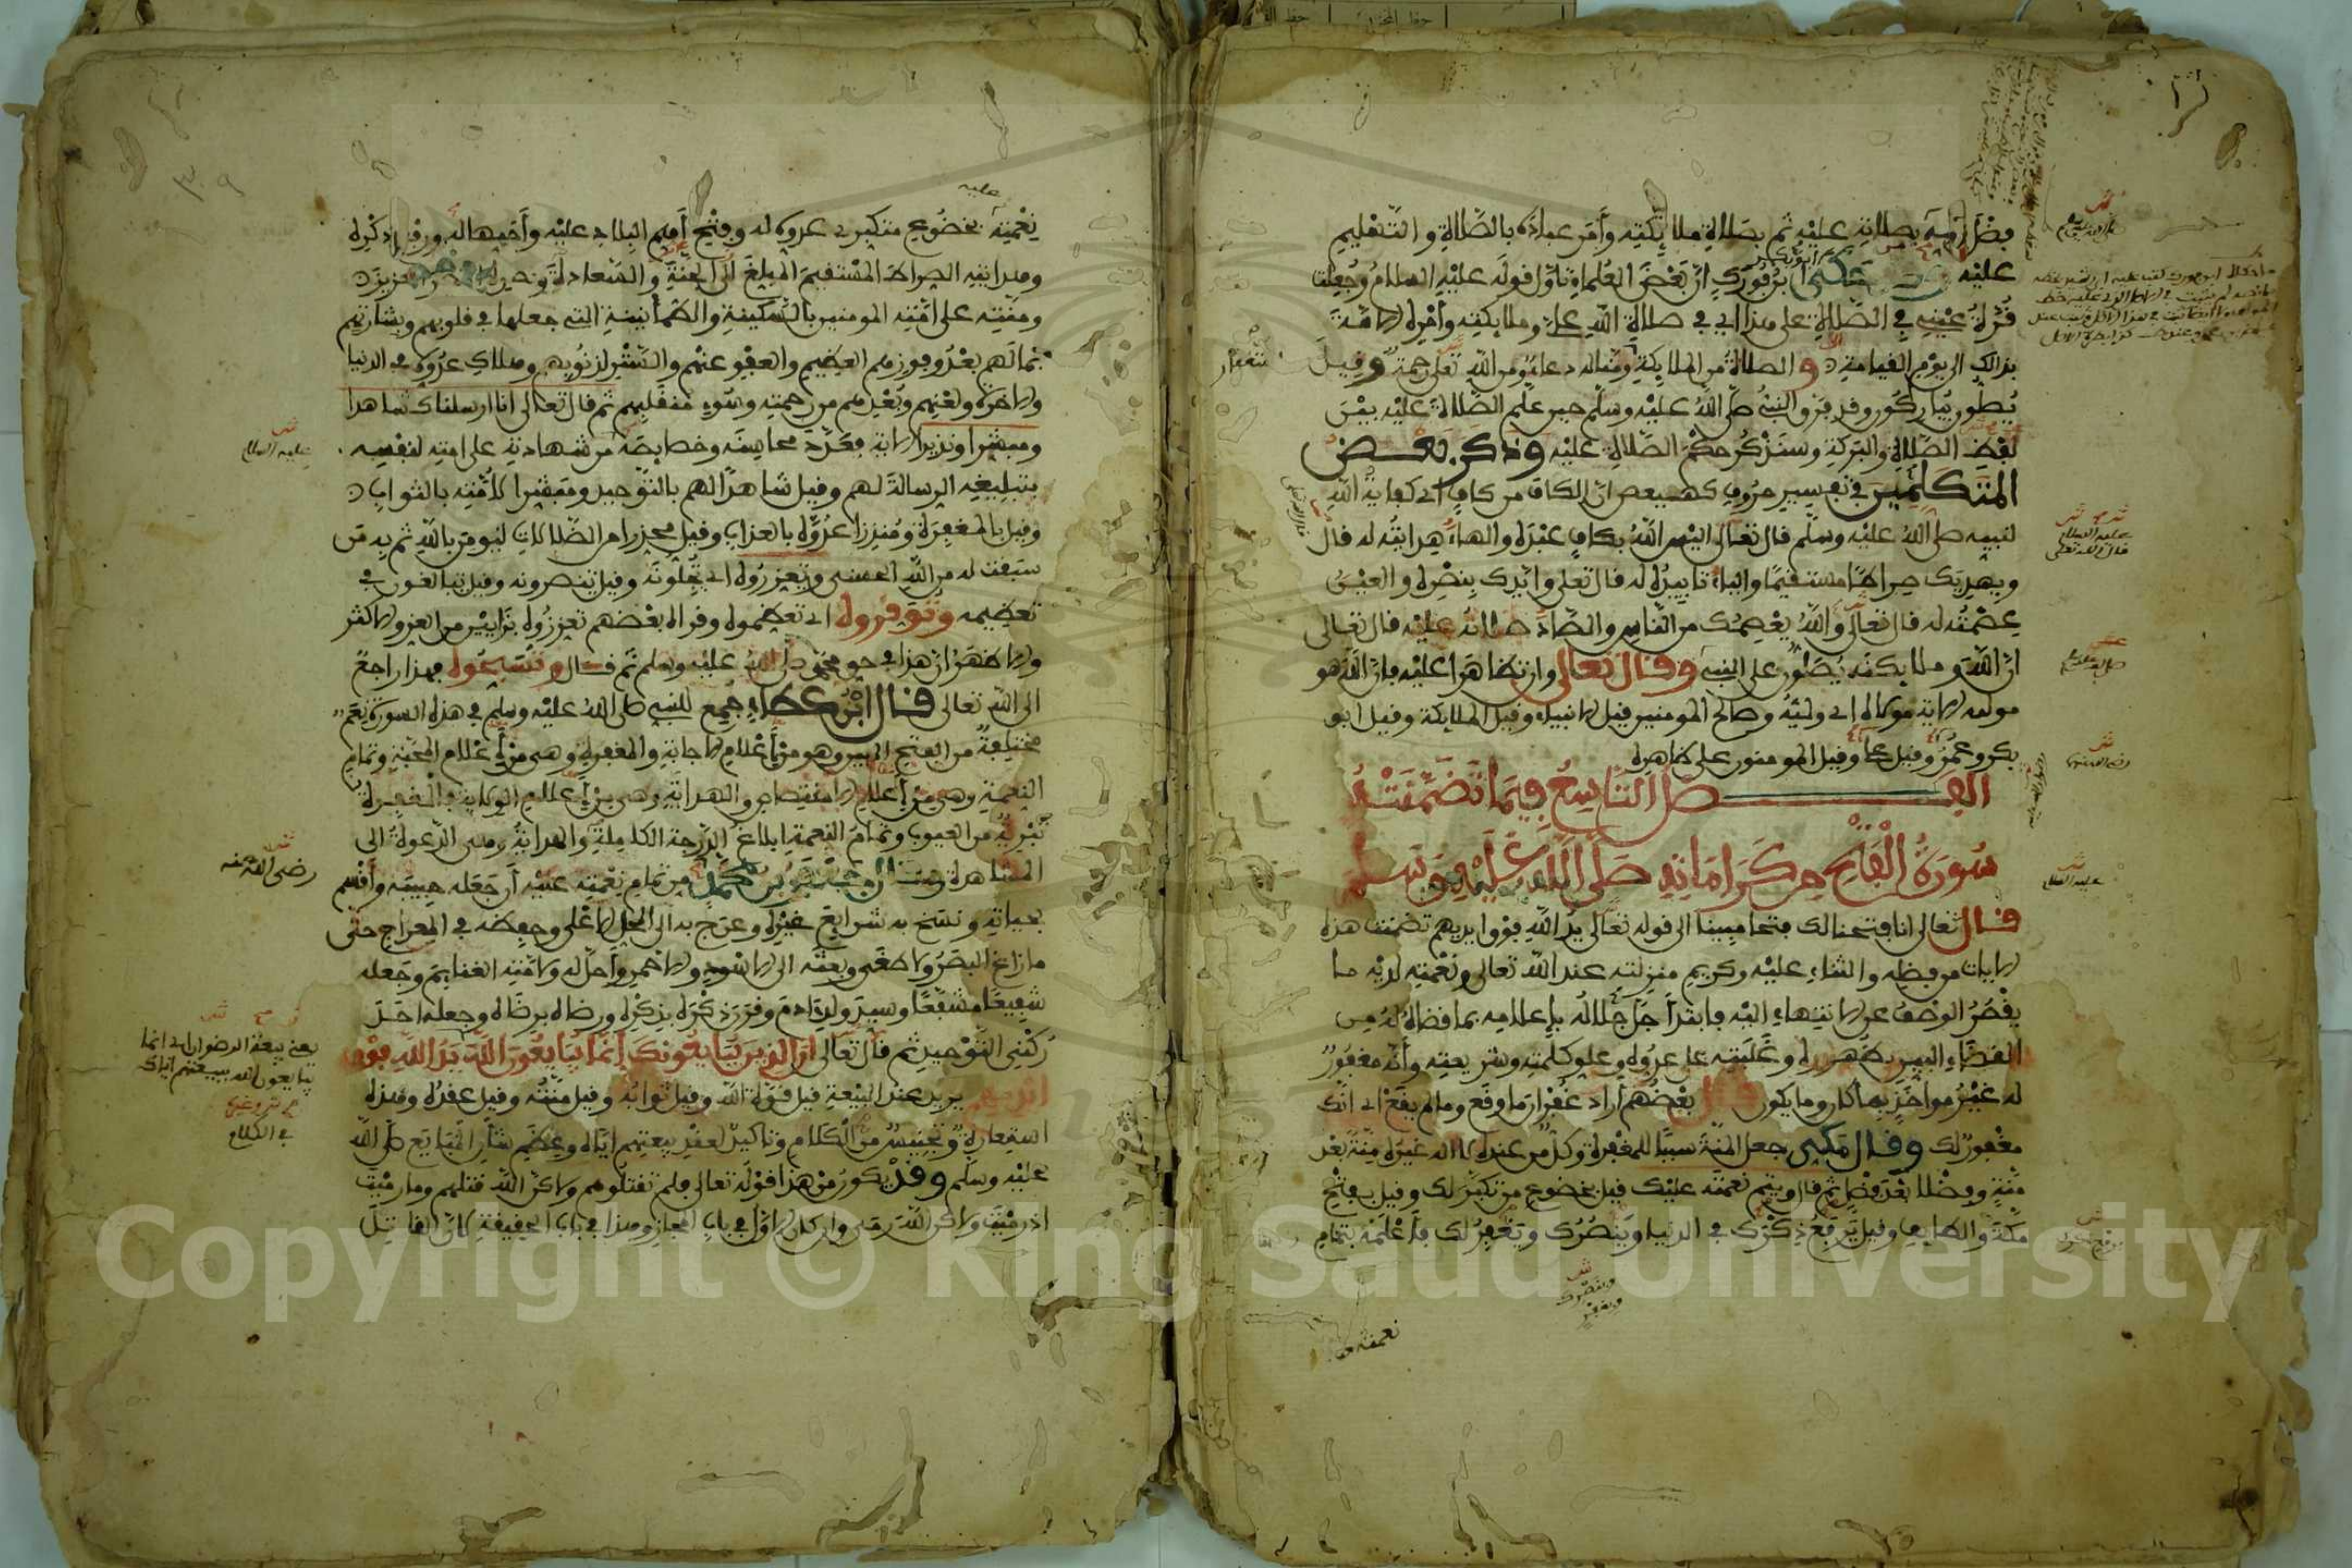 فضل نبيه بصلاته عليه ثم بصلاة ملائكته وأمر عباده بالصلاة والتسليم
عليه وحكى ابن فورك أن بعض العلماء تأول قوله عليه السلام وجعلت
قرة عيني في الصلاة على هذا أي في صلاة الله علي وملائكته وأمره الأمة
بذالك الى يوم القيامة والصلاة من الملائكة ومنا له دعاء ومن الله تعلى رحمة وقيل
يصلون يباركون وقد فرق النبي صلى الله عليه وسلم حين علم الصلاة عليه بين
لفظ الصلاة والبركة وسنذكر حكم الصلاة عليه وذكر بعض
المتكلمين في تفسير حروف كهيعص ان الكاف من كاف أي كفاية الله
لنبيه صلى الله عليه وسلم قال تعالى اليس الله بكاف عبده والهاء هدايته له قال
ويهديك صراطا مستقيما والياء تاييده له قال تعلى وايدك بنصره والعين
عصمته له قال تعالى والله يعصمك من الناس والصاد صلاته عليه قال تعالى
ان الله وملائكته يصلون على النبي وقال تعالى وان تظاهرا عليه فان الله هو
موليه الاية مولاه اي وليه وصالح المومنين قيل الانبياء وقيل الملائكة وقيل ابو
بكر وعمر وقيل علي وقيل المومنون على ظاهره
الفصل التاسع فيما تضمنته
سورة الفتح من كراماته صلى الله عليه وسلم
قال تعالى انا فتحنا لك فتحا مبينا الى قوله تعالى يد الله فوق ايديهم تضمنت هذه
الايات من فضله والثناء عليه وكريم منزلته عند الله تعالى ونعمته لديه ما
يقصر الوصف عن الانتهاء اليه فابتدأ جل جلاله بإعلامه بما قضاه له من
القضاء البين بظهوره وغلبته على عدوه وعلو كلمته وشريعته وأنه مغفور
له غير مواخذ بما كان وما يكون قال بعضهم أراد غفران ما وقع وما لم يقع اي انك
مغفور لك وقال مكي جعل المنة سببا للمغفرة وكل من عنده لا اله غيره منة بعد
منة وفضلا بعد فضل ثم قال ويتم نعمته عليك قيل بخضوع من تكبر لك وقيل بفتح
مكة والطايف وقيل يرفع ذكرك في الدنيا وينصرك ويغفر لك فأعلمه بتمام
نعمته
عليه
نعمته بخضوع متكبري عدوه له وفتح أهم البلاد عليه وأحبها له ورفع ذكره
وهدايته الصراط المستقيم المبلغ الى الجنة والسعادة ونصره النصر العزيز
ومنته على امته المومنين بالسكينة والطمأنينة التي جعلها في قلوبهم وبشارتهم
بما لهم بعد وفوزهم العظيم والعفو عنهم والستر لذنوبهم وهلاك عدوه في الدنيا
والاخرة ولعنهم وبعدهم من رحمته وسوء منقلبهم ثم قال تعالى انا ارسلناك شاهدا
ومبشرا ونذيرا الاية فعدد محاسنه وخصايصه من شهادته على امته لنفسه
بتبليغه الرسالة لهم وقيل شاهدا لهم بالتوحيد ومبشرا لأمته بالثواب
وقيل بالمغفرة ومنذرا عدوه بالعذاب وقيل محذرا من الضلالات ليومن بالله ثم به من
سبقت له من الله الحسنى وتعزروه اي تجلونه وقيل تنصرونه وقيل تبالغون في
تعظيمه وتوقروه اي تعظموه وقرأه بعضهم تعززوه بزايين من العز والاكثر
والاظهر ان هذا في حق محمد صلى الله عليه وسلم ثم قال وتسبحوه فهذا راجع
الى الله تعالى قال ابن عطاء جمع للنبي صلى الله عليه وسلم في هذه السورة نعم
مختلفة من الفتح المبين وهو من أعلام الاجابة والمغفرة وهي من أعلام المحبة وتمام
النعمة وهي من أعلام الاختصاص والهداية وهي من أعلام الولاية فالمغفرة
تبرئة من العيوب وتمام النعمة ابلاغ الدرجة الكاملة والهداية وهي الدعوة الى
المشاهدة وقال جعفر بن محمد من تمام نعمته عليه أن جعله حبيبه وأقسم
بحياته ونسخ به شرايع غيره وعرج به الى المحل الاعلى وحفظه في المعراج حتى
ما زاغ البصر وما طغى وبعثه الى الاسود والاحمر وأحل له ولأمته الغنايم وجعله
شفيعا مشفعا وسيد ولد ادم وقرن ذكره بذكره ورضاه برضاه وجعله احد
ركني التوحيد ثم قال تعالى ان الذين يبايعونك إنما يبايعون الله يد الله فوق
ايديهم يريد عند البيعة قيل قوة الله وقيل ثوابه وقيل منته وقيل عقده وهذه
استعارة وتجنيس من الكلام وتاكيد لعقد بيعتهم اياه وعظم شأن المبايع صلى الله
عليه وسلم وقد يكون من هذا قوله تعالى فلم تقتلوهم ولاكن الله قتلهم وما رميت
اذ رميت ولاكن الله رمى وان كان الاول في باب المجاز وهذا في باب الحقيقة لأن القاتل
عليه السلام
رضي الله عنه
يعني بيعة الرضوان اي انما
يبايعون الله ببيعتهم اياك
في الكلام
Copyright © King Saud University